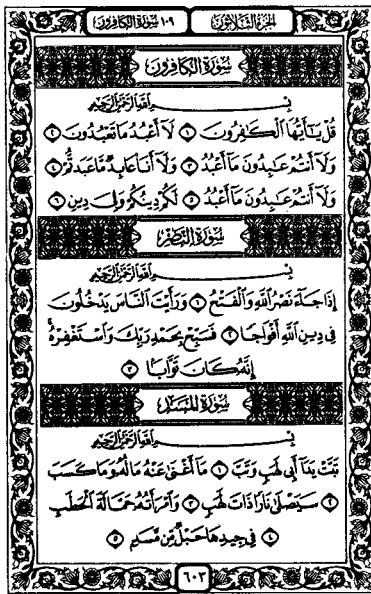 الجزء الثلاثون ١٠٩ سورة الكافرون
سورة الكافرون
بسم الله الرحمن الرحيم
قُلْ يَٰٓأَيُّهَا ٱلْكَٰفِرُونَ ١ لَآ أَعْبُدُ مَا تَعْبُدُونَ ٢
وَلَآ أَنتُمْ عَٰبِدُونَ مَآ أَعْبُدُ ٣ وَلَآ أَنَا۠ عَابِدٌ مَّا عَبَدتُّمْ ٤
وَلَآ أَنتُمْ عَٰبِدُونَ مَآ أَعْبُدُ ٥ لَكُمْ دِينُكُمْ وَلِىَ دِينِ ٦
سورة النصر
بسم الله الرحمن الرحيم
إِذَا جَآءَ نَصْرُ ٱللَّهِ وَٱلْفَتْحُ ١ وَرَأَيْتَ ٱلنَّاسَ يَدْخُلُونَ
فِى دِينِ ٱللَّهِ أَفْوَاجًا ٢ فَسَبِّحْ بِحَمْدِ رَبِّكَ وَٱسْتَغْفِرْهُ ۚ
إِنَّهُۥ كَانَ تَوَّابًۢا ٣
سورة المسد
بسم الله الرحمن الرحيم
تَبَّتْ يَدَآ أَبِى لَهَبٍ وَتَبَّ ١ مَآ أَغْنَىٰ عَنْهُ مَالُهُۥ وَمَا كَسَبَ
٢ سَيَصْلَىٰ نَارًا ذَاتَ لَهَبٍ ٣ وَٱمْرَأَتُهُۥ حَمَّالَةَ ٱلْحَطَبِ
٤ فِى جِيدِهَا حَبْلٌ مِّن مَّسَدٍۭ ٥
٦٠٣